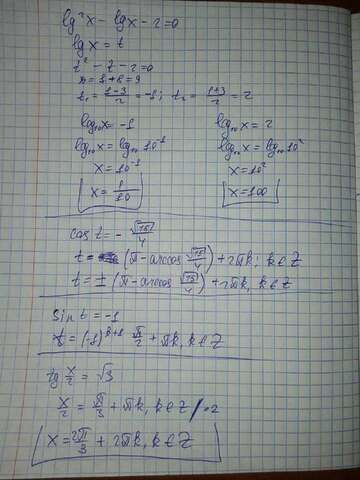 lg²x − lgx − 2 = 0
lgx = t
t² − t − 2 = 0
D = 1 + 8 = 9
t₁ = (1−3)/2 = −1; t₂ = (1+3)/2 = 2
log₁₀x = −1 log₁₀x = 2
log₁₀x = log₁₀10⁻¹ log₁₀x = log₁₀10²
x = 10⁻¹ x = 10²
x = 1/10 x = 100
cos t = − √15/4
t = (π − arccos √15/4) + 2πk; k∈Z
t = ± (π − arccos √15/4) + 2πk, k∈Z
Sin t = −1
t = (−1)ᵏ⁺¹ π/2 + πk, k∈Z
tg x/2 = √3
x/2 = π/3 + πk, k∈Z / ·2
x = 2π/3 + 2πk, k∈Z